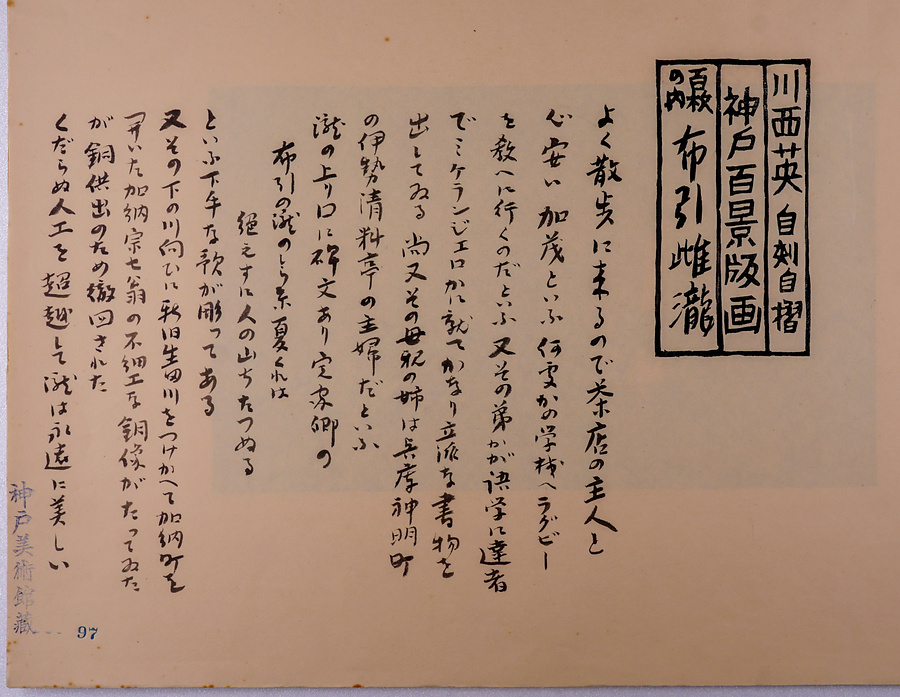 川西英 自刻自摺
神戸百景版画
百景の内 布引雌瀧
よく散歩に来るので茶店の主人と
心安い 加茂といふ 何處かの学校へラグビー
を教へに行くのだといふ 又その弟が語学に達者
でミケランジェロに就てかなり立派な書物を
出してゐる 尚又その母親の姉は兵庫神明町
の伊勢清料亭の主婦だといふ
瀧の上り口に碑文あり定家卿の
布引の瀧のしら糸夏くれは
絶えすに人の山ちたつぬる
といふ下手な歌が彫ってある
又その下の川向ひに新旧生田川をつけかへて加納町を
開いた加納宗七翁の不細工な銅像がたってゐた
が銅供出のため撤回された
くだらぬ人工を超越して瀧は永遠に美しい
神戸美術館蔵
97